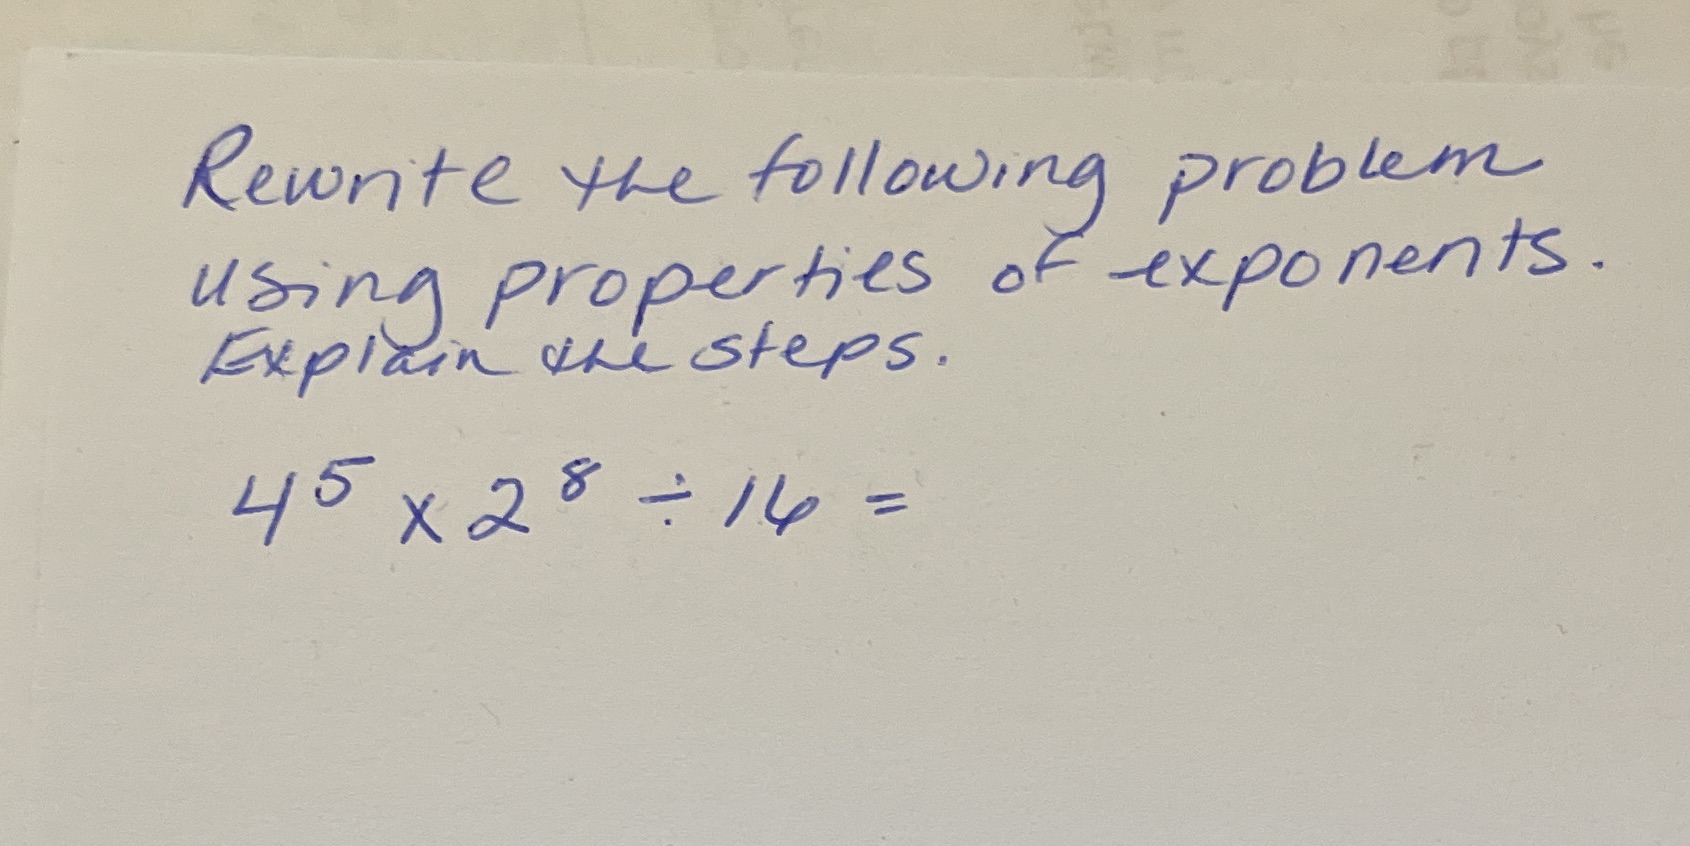 Rewrite the following problem
using properties of exponents.
Explain the steps.
4⁵ x 2⁸ ÷ 16 =